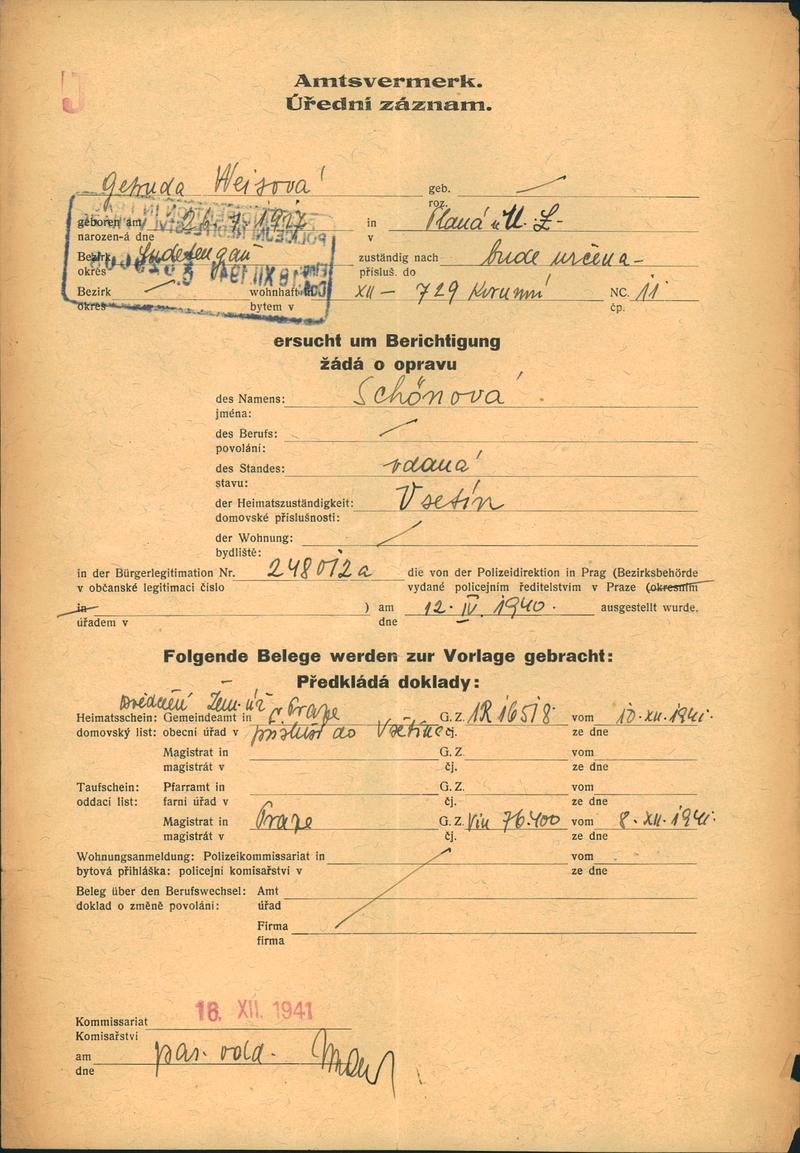 J
Amtsvermerk.
Úřední záznam.
Getruda Weisová geb.
roz.
geboren am in Planá
narozen-á dne v
Bezirk Sudetengau zuständig nach bude určena-
okres přísluš. do
Bezirk wohnhaft in XII - 729 Korunní NC. 11
okres bytem v čp.
ersucht um Berichtigung
žádá o opravu
des Namens: Schönová
jména:
des Berufs:
povolání:
des Standes: vdaná
stavu:
der Heimatszuständigkeit: Vsetín
domovské příslušnosti:
der Wohnung:
bydliště:
in der Bürgerlegitimation Nr. 248012a die von der Polizeidirektion in Prag (Bezirksbehörde
v občanské legitimaci číslo vydané policejním ředitelstvím v Praze (okresním
in ) am 12. IV. 1940. ausgestellt wurde.
úřadem v dne
Folgende Belege werden zur Vorlage gebracht:
Předkládá doklady:
Zem. úř
Heimatsschein: Gemeindeamt in v Praze G. Z. vom 10. XII. 1941.
domovský list: obecní úřad v přísluší do Vsetína čj. ze dne
Magistrat in G. Z. vom
magistrát v čj. ze dne
Taufschein: Pfarramt in G. Z. vom
oddací list: farní úřad v čj. ze dne
Magistrat in Praze G. Z. 76.400 vom 8. XII. 1941.
magistrát v čj. ze dne
Wohnungsanmeldung: Polizeikommissariat in vom
bytová přihláška: policejní komisařství v ze dne
Beleg über den Berufswechsel: Amt
doklad o změně povolání: úřad
Firma
firma
16. XII. 1941
Kommissariat
Komisařství
am pas. odd.
dne